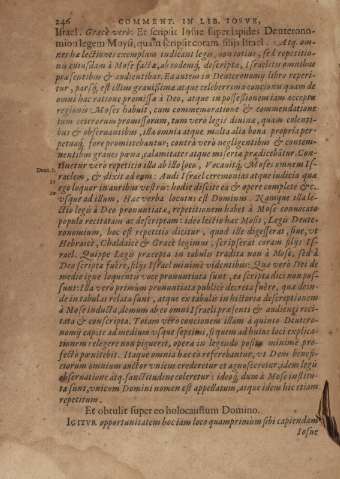 246 COMMENT. IN LIB. IOSVE,
Israel. Græcè verò: Et scripsit Iosue super lapides Deuterono-
mion legem Moysi, quam scripsit coram filiis Israel. Atq. om-
nes hæ lectiones exemplum iudicant legis, non totius, sed repetitio-
nis cuiusdam à Mose factæ, ab eodemq́; descripta, Israelitis omnibus
præsentibus & audientibus. Ea autem in Deuteronomij libro reperi-
tur, parsq́; est illius grauissima atque celeberrimi concionis quam de
omni hac ratione promissa à Deo, atque in possessionem iam accepta
regionis Moses habuit, cum commemoratione & commendatione
tum ceterorum promissorum, tum verò legis diuina, quam colenti-
bus & obseruantibus, illa omnia atque multa alia bona propria per-
petuaq́; fore promittebantur; contrà verò negligentibus & contem-
nentibus graues pœna calamitates atque miseria prædicebātur. Con-
tinetur verò repetitio illa ab illo loco, Vocauitq́; Moses omnem Is-
Deut. 5.
raelem, & dixit ad eum: Audi Israel ceremonias atque iudicia quæ
ego loquar in auribus vestris: hodie discite ea & opere complete &c.
vsque ad illum, Hæc verba locutus est Dominus. Namque illa le-
ctio legis à Deo pronuntiata, repetitionem habet à Mose conuocato
populo recitatam ac descriptam: ideo lectu hæc Mosis, Legis Deute-
ronomium, hoc est repetitio dicitur, quod ille digesserat, siue, vt
Hebraicè, Chaldaicè & Græcè legimus, scripserat coram filijs Is-
rael. Quippe Legis præcepta in tabulis tradita non à Mose, sed à
Deo scripta fuêre, filijs Israel minimè videntibus: Quæ verò Deo de
medio igne loquente voce pronuntiata sunt, ea scripta dici non pos-
sunt: Illa verò primùm pronuntiata publicè decreta fuêre, quæ dein-
de in tabulas relata sunt, atque ex tabulis in historia descriptionem
à Mose inducta, demum ab eo omni Israel præsenti & audienti reci-
tata & conscripta. Totam verò concionem illam à quinto Deutero-
nomij capite ad medium vsque septimi, si quem ad huius loci explica-
tionem relegere non piguerit, opera in legendo posita minimè pro-
fectò pœnitebit. Itaque omnia hæc eò referebantur, vt Deus benefi-
ciorum omnium auctor vnicus crederetur et agnosceretur, idem legis
obseruatione atq. sanctitudine coleretur: ideoq́; dum à Mose institu-
ta sunt, vnicum Domini nomen est appellatum, atque idem hic etiam
repetitum.
Et obtulit super eo holocaustum Domino.
IGITVR opportunitatem hoc iam loco quamprimum sibi capiendam
Iosue